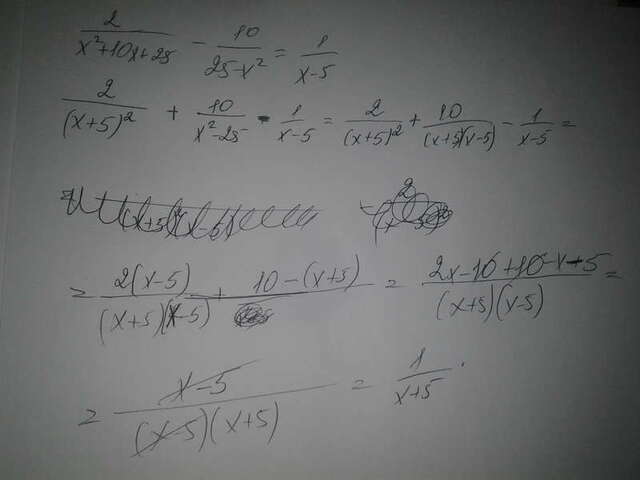 2/(x²+10x+25) - 10/(25-x²) = 1/(x-5)
2/(x+5)² + 10/(x²-25) - 1/(x-5) = 2/(x+5)² + 10/((x+5)(x-5)) - 1/(x-5) =
= 2(x-5)/((x+5)(x-5)) + 10-(x+5) = (2x-10+10-x-5)/((x+5)(x-5)) =
= (x-5)/((x-5)(x+5)) = 1/(x+5).